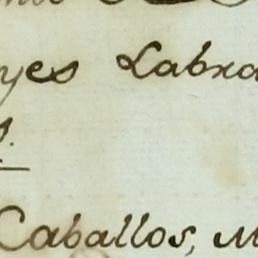 yes Labra
s.
Caballos, M